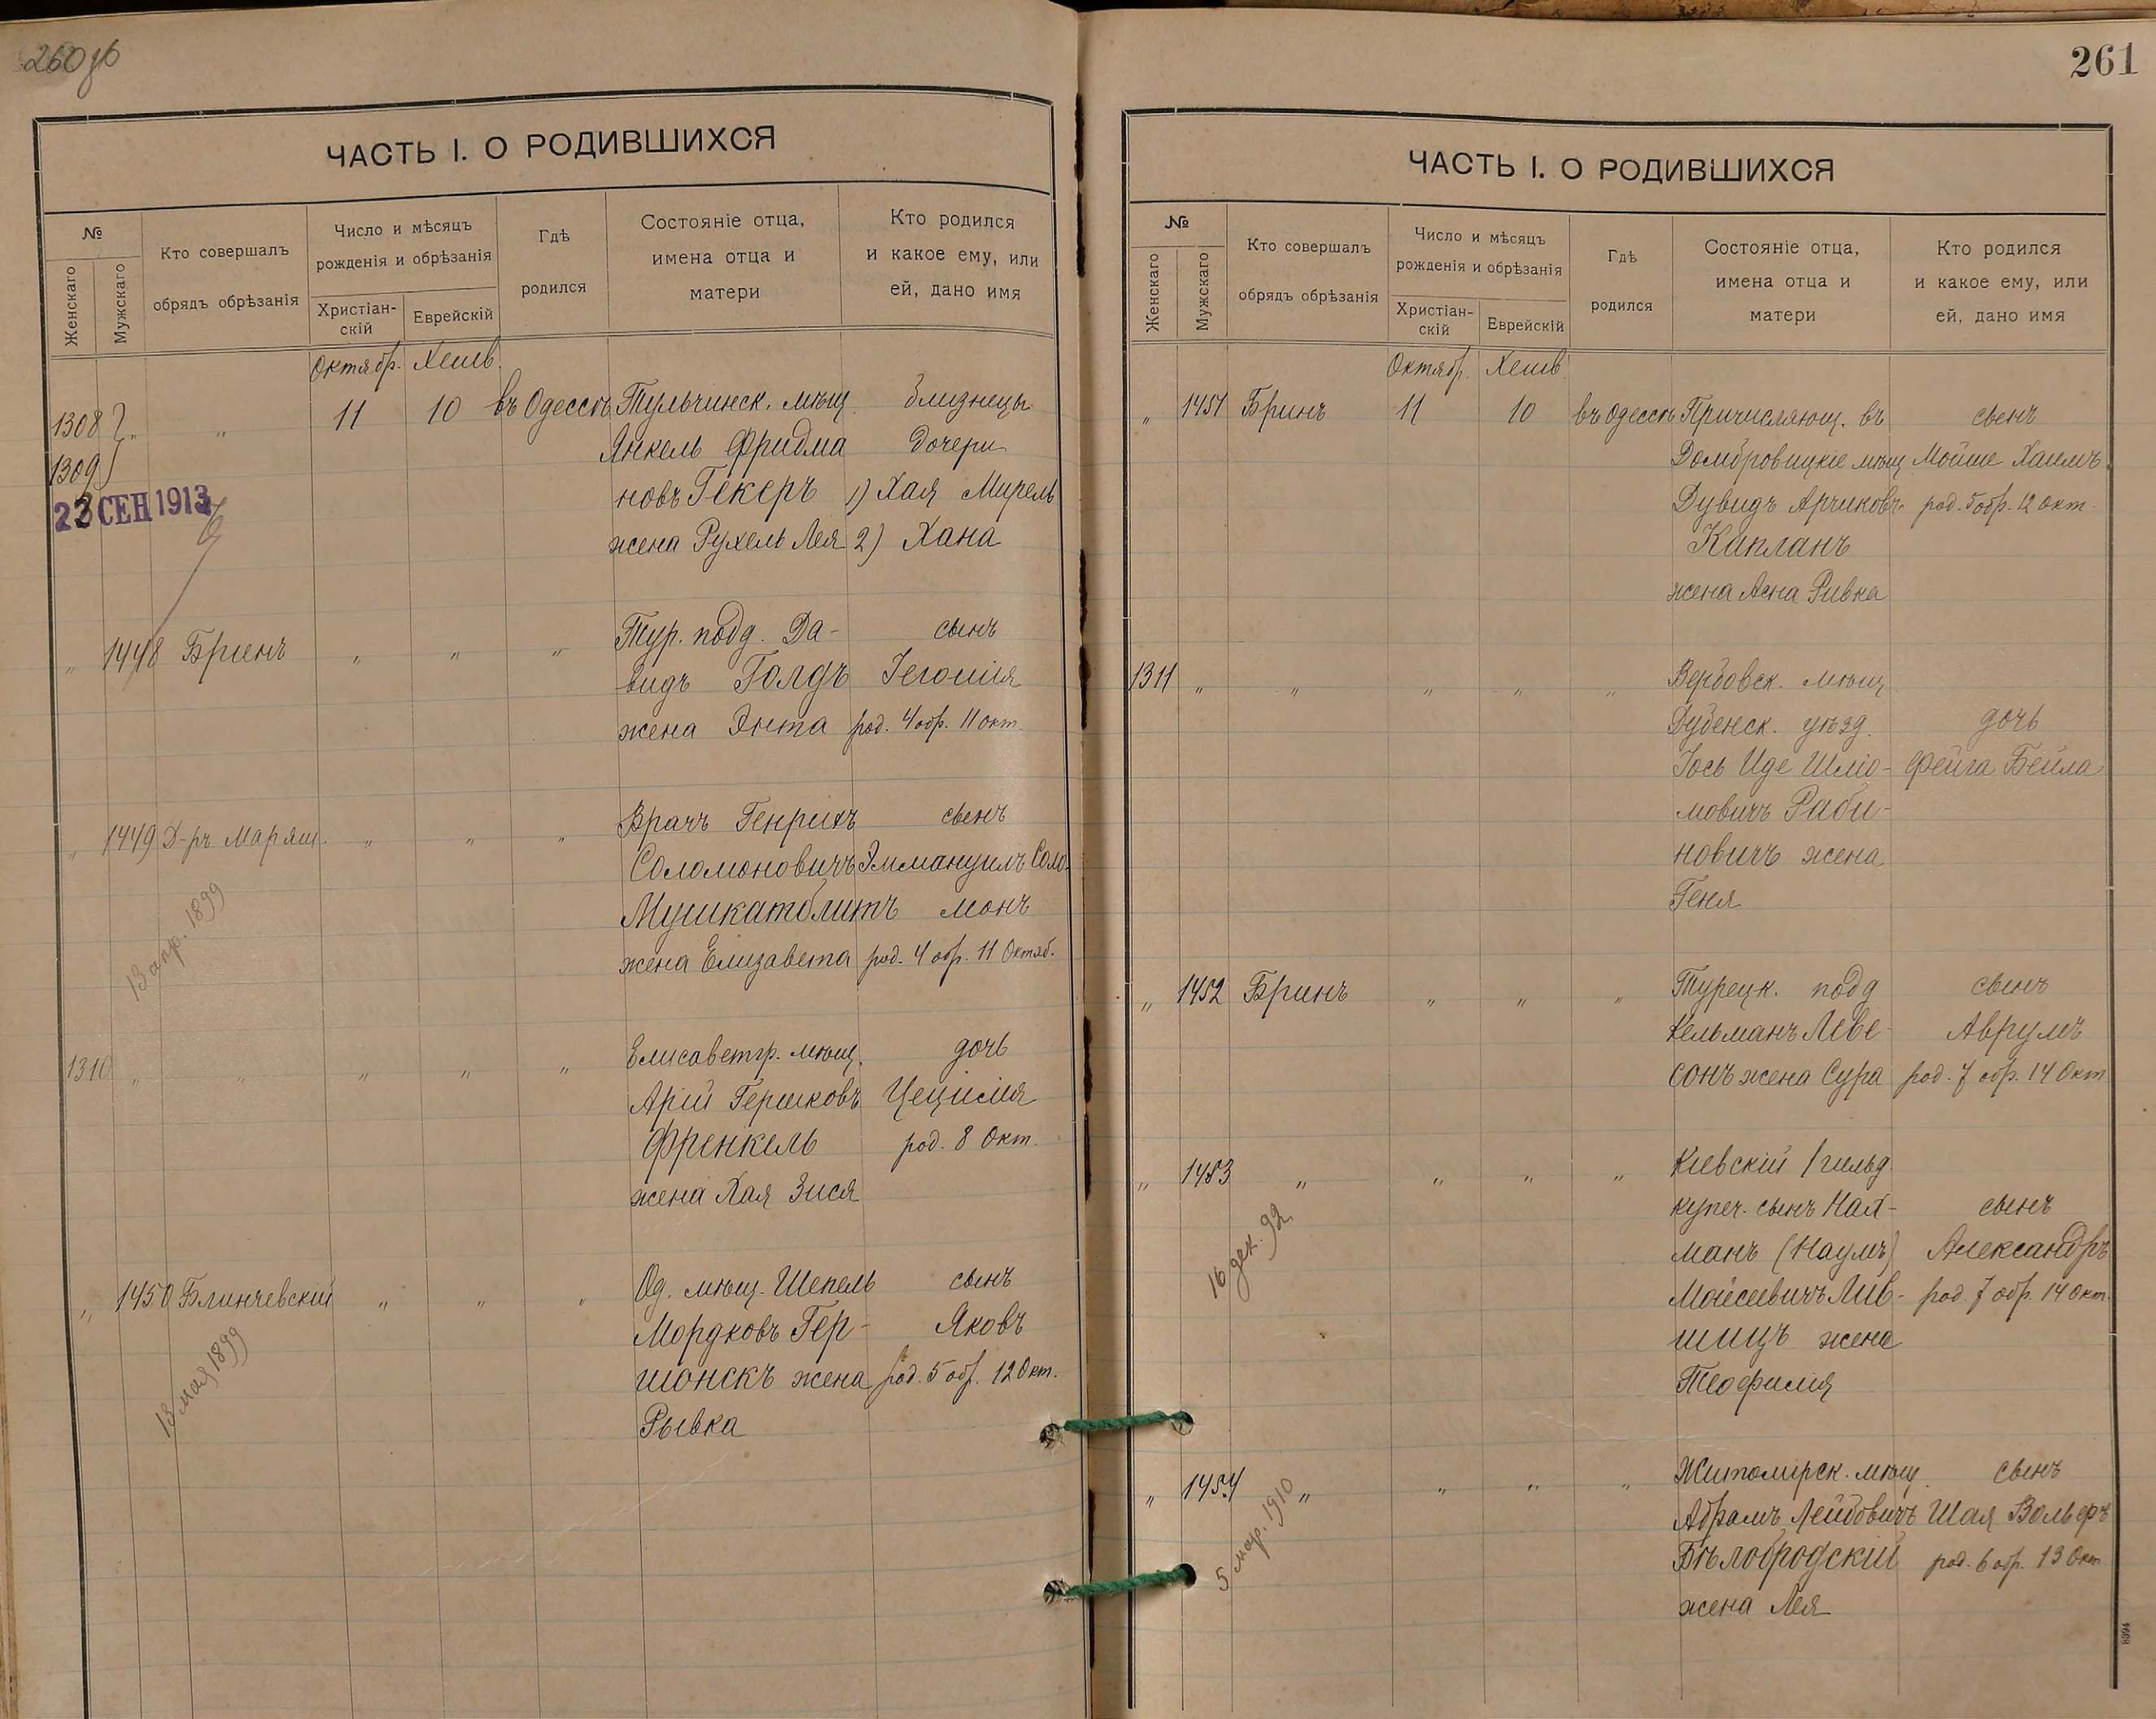 260 об
ЧАСТЬ I. О РОДИВШИХСЯ
№
Женскаго
Мужскаго
Кто совершалъ
обрядъ обрѣзанія
Число и мѣсяцъ
рожденія и обрѣзанія
Христіан-
скій
Еврейскій
Гдѣ
родился
Состояніе отца,
имена отца и
матери
Кто родился
и какое ему, или
ей, дано имя
Октябр. Хешв.
1308 " " 11 10 въ Одессѣ Тульчинск. мѣщ. близнецы
1309 Янкель Фридма дочери
23 СЕН 1913 новъ Гекеръ 1) Хая Мирель
жена Рухель Лея 2) Хана
" 1448 Бринъ " " " Тур. подд. Да- сынъ
видъ Голдъ Іегошія
жена Энта род. 4 обр. 11 окт.
" 1449 Д-ръ Маряш. " " " Врачъ Генрихъ сынъ
Соломоновичъ Эммануилъ Соло-
13 апр. 1899
Мушкатблитъ монъ
жена Елизавета род. 4 обр. 11 Октяб.
1310 " " " " " Елисаветгр. мѣщ. дочь
Арій Гершковъ Цецилія
Френкель род. 8 Окт.
жена Хая Зися
" 1450 Блинчевскій " " " Од. мѣщ. Шепель сынъ
Мордковъ Гер- Яковъ
13 мая 1899
шонскъ жена род. 5 обр. 12 Окт.
Рывка
261
ЧАСТЬ I. О РОДИВШИХСЯ
№
Женскаго
Мужскаго
Кто совершалъ
обрядъ обрѣзанія
Число и мѣсяцъ
рожденія и обрѣзанія
Христіан-
скій
Еврейскій
Гдѣ
родился
Состояніе отца,
имена отца и
матери
Кто родился
и какое ему, или
ей, дано имя
Октябр. Хешв.
" 1451 Бринъ 11 10 въ Одессѣ Причисляющ. въ сынъ
Домбровицкіе мѣщ Мойше Хаимъ
Дувидъ Арчиковъ род. 5 обр. 12 окт.
Капланъ
жена Асна Ривка
1311 " " " " " Вербовск. мѣщ
Дубенск. уѣзд. дочь
Іось Иде Шліо- Фейга Бейла
мовичъ Раби-
новичъ жена
Геня
" 1452 Бринъ " " " Турецк. подд сынъ
Кельманъ Леве- Аврумъ
сонъ жена Сура род. 7 обр. 14 Окт
" 1453 " " " " Кіевскій I гильд.
купеч. сынъ Нах- сынъ
16 дек. 92
манъ (Наумъ) Александръ
Моисеевичъ Лив- род. 7 обр. 14 окт.
шицъ жена
Теофилія
" 1454 " " " " Житомірск. мѣщ. сынъ
5 мар. 1910
Абрамъ Лейбовичъ Шая Вольфъ
Бѣлобродскій род. 6 обр. 13 Окт
жена Лея